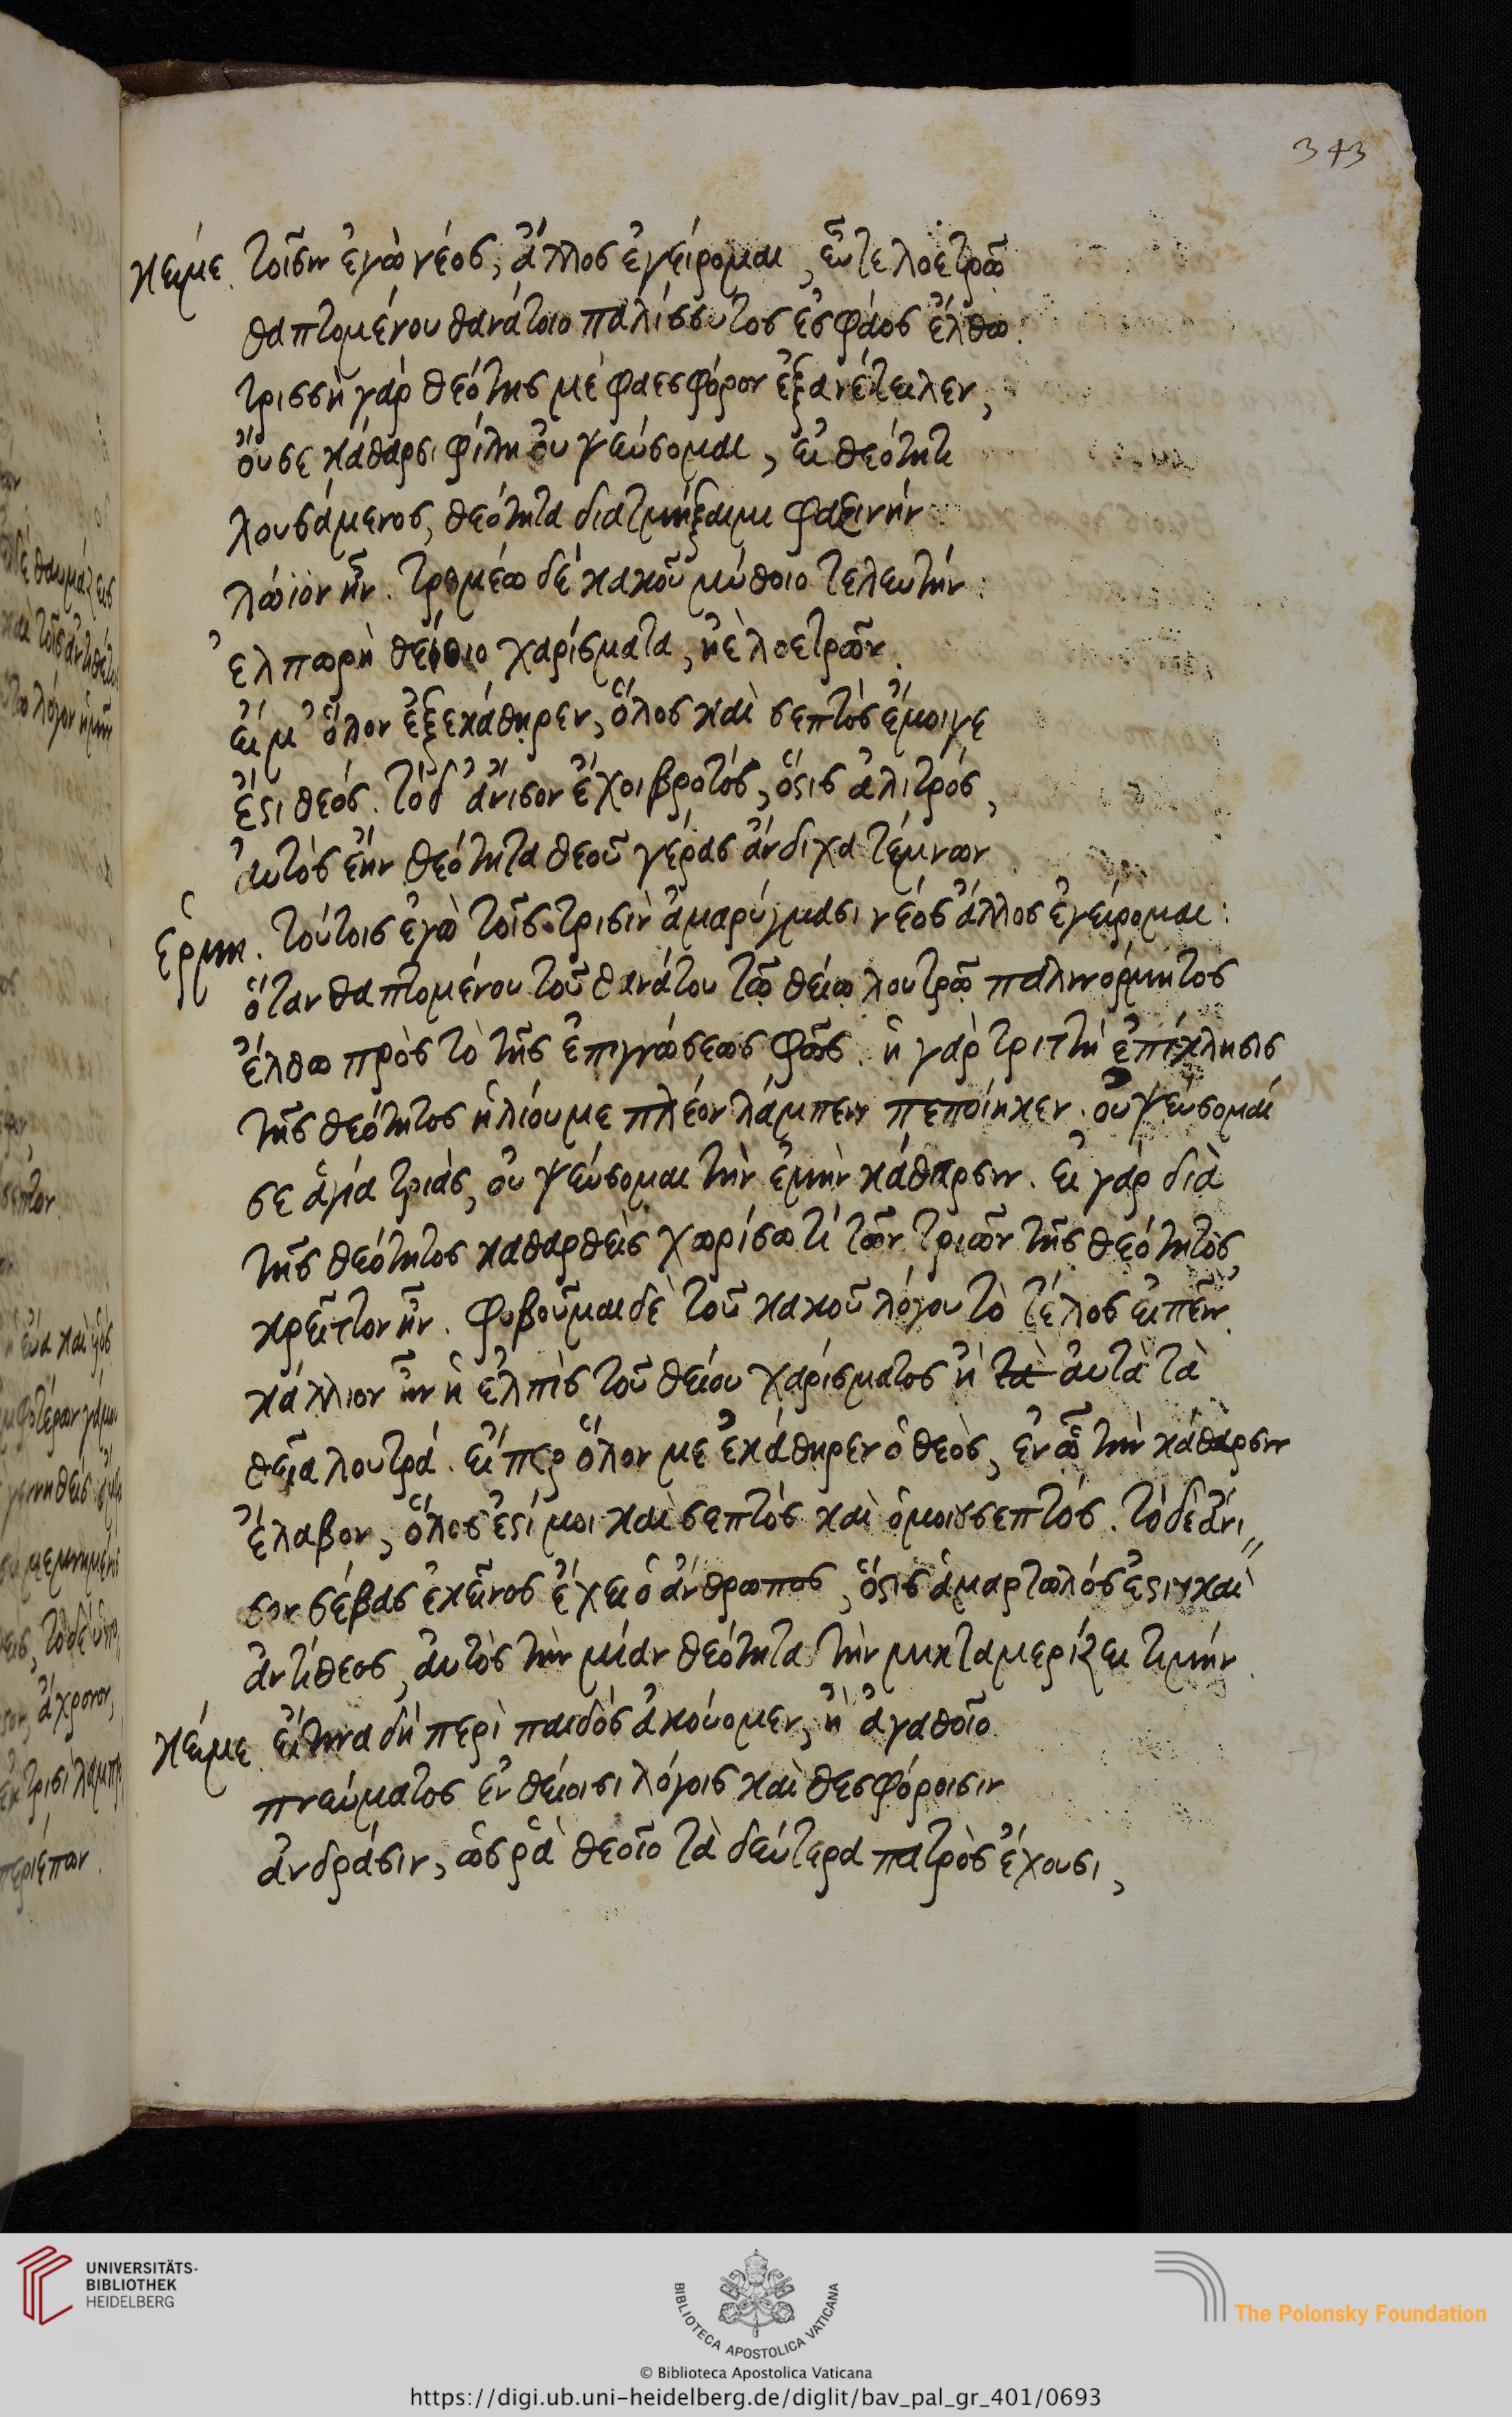 343
κείμε. τοῖσιν ἐγὼ νέος, ἄλλος ἐγείρομαι, εὖτε λοετρῶ
θαπτομένου θανάτοιο παλίσσυτος ἐς φάος ἔλθω.
τρισσὴ γάρ θεότης μὲ φαεσφόρον ἐξανέτειλεν,
ὄυ σε κάθαρσι φίλη ὀυ ψεύσομαι, εἰ θεότητι
λουσάμενος, θεότητα διατμήξαιμι φαεινήν
λώϊον ἦν. τρομέω δέ κακοῦ μύθοιο τελευτήν:
ἐλπωρὴ θείοιο χαρίσματα, ἠὲ λοετρῶν.
εἴ μ' ὅλον ἐξεκάθηρεν, ὅλος καὶ σεπτὸς ἔμοιγε
ἔστι θεός. τόδ' ἄνισον ἔχοι βροτός, ὅστις ἀλιτρός,
ἀυτὸς ἑὴν θεότητα θεοῦ γέρας ἄνδιχα τέμνων
ἑρμη. τούτοις ἐγὼ τοῖς τρισὶν ἀμαρύγμασι νέος ἄλλος ἐγείρομαι:
ὅταν θαπτομένου τοῦ θανάτου τῷ θείῳ λουτρῷ παλινόρμητος
ἔλθω πρὸς τὸ τῆς ἐπιγνώσεως φῶς. ἡ γάρ τριττὴ ἐπίκλησις
τῆς θεότητος ἡλίου με πλέον λάμπειν πεποίηκεν. οὐ ψεύσομαί
σε ἁγία τριὰς, οὐ ψεύσομαι τὴν ἐμὴν κάθαρσιν. εἰ γάρ διὰ
τῆς θεότητος καθαρθεὶς χωρίσω τί τῶν τριῶν τῆς θεότητος,
κρεῖττον ἦν. φοβοῦμαι δὲ τοῦ κακοῦ λόγου τὸ τέλος εἰπεῖν.
κάλλιον ἦν ἡ ἐλπὶς τοῦ θείου χαρίσματος ἢ τὰ ἀυτὰ τὰ
θεῖα λουτρά. εἴπερ ὅλον με ἐκάθηρεν ὁ θεὸς, ἐν ὧ τὴν κάθαρσιν
ἔλαβον, ὅλος ἐστί μοι καὶ σεπτὸς καὶ ὁμοιοσεπτός. τὸ δὲ ἄνι=
σον σέβας ἐκεῖνος ἔχει ὁ ἄνθρωπος, ὅστις ἁμαρτωλός ἐστι καὶ
ἀντίθεος, ἀυτὸς τὴν μίαν θεότητα τὴν μικτα μερίζει τιμήν.
κείμε. εἴ τινα δὴ περὶ παιδὸς ἀκούομεν, ἢ ἀγαθοῖο
πνεύματος ἐν θείοισι λόγοις καὶ θεσφόροισιν
ἀνδράσιν, ὡς ῥὰ θεοῖο τὰ δεύτερα πατρὸς ἔχουσι,
UNIVERSITÄTS-
BIBLIOTHEK
HEIDELBERG
BIBLIOTECA APOSTOLICA VATICANA
The Polonsky Foundation
© Biblioteca Apostolica Vaticana
https://digi.ub.uni-heidelberg.de/diglit/bav_pal_gr_401/0693